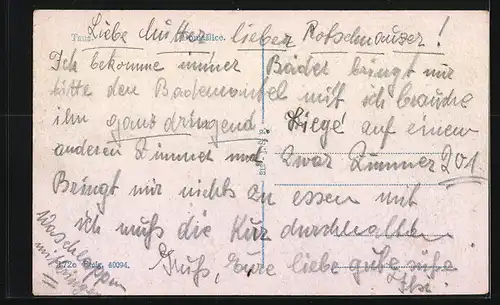 Taus. Domažlice.
Liebe Mutter lieber Rotschnauzer!
Ich bekomme immer Bäder bringt mir
bitte den Bademantel mit ich brauche
ihn ganz dringend Liege auf einem
anderen Zimmer und zwar Zimmer 201
Bringt mir nichts zu essen mit
ich muß die Kur durchhalten
Gruß, Eure liebe gute süße
Waschlappen
mitbringen
40094.